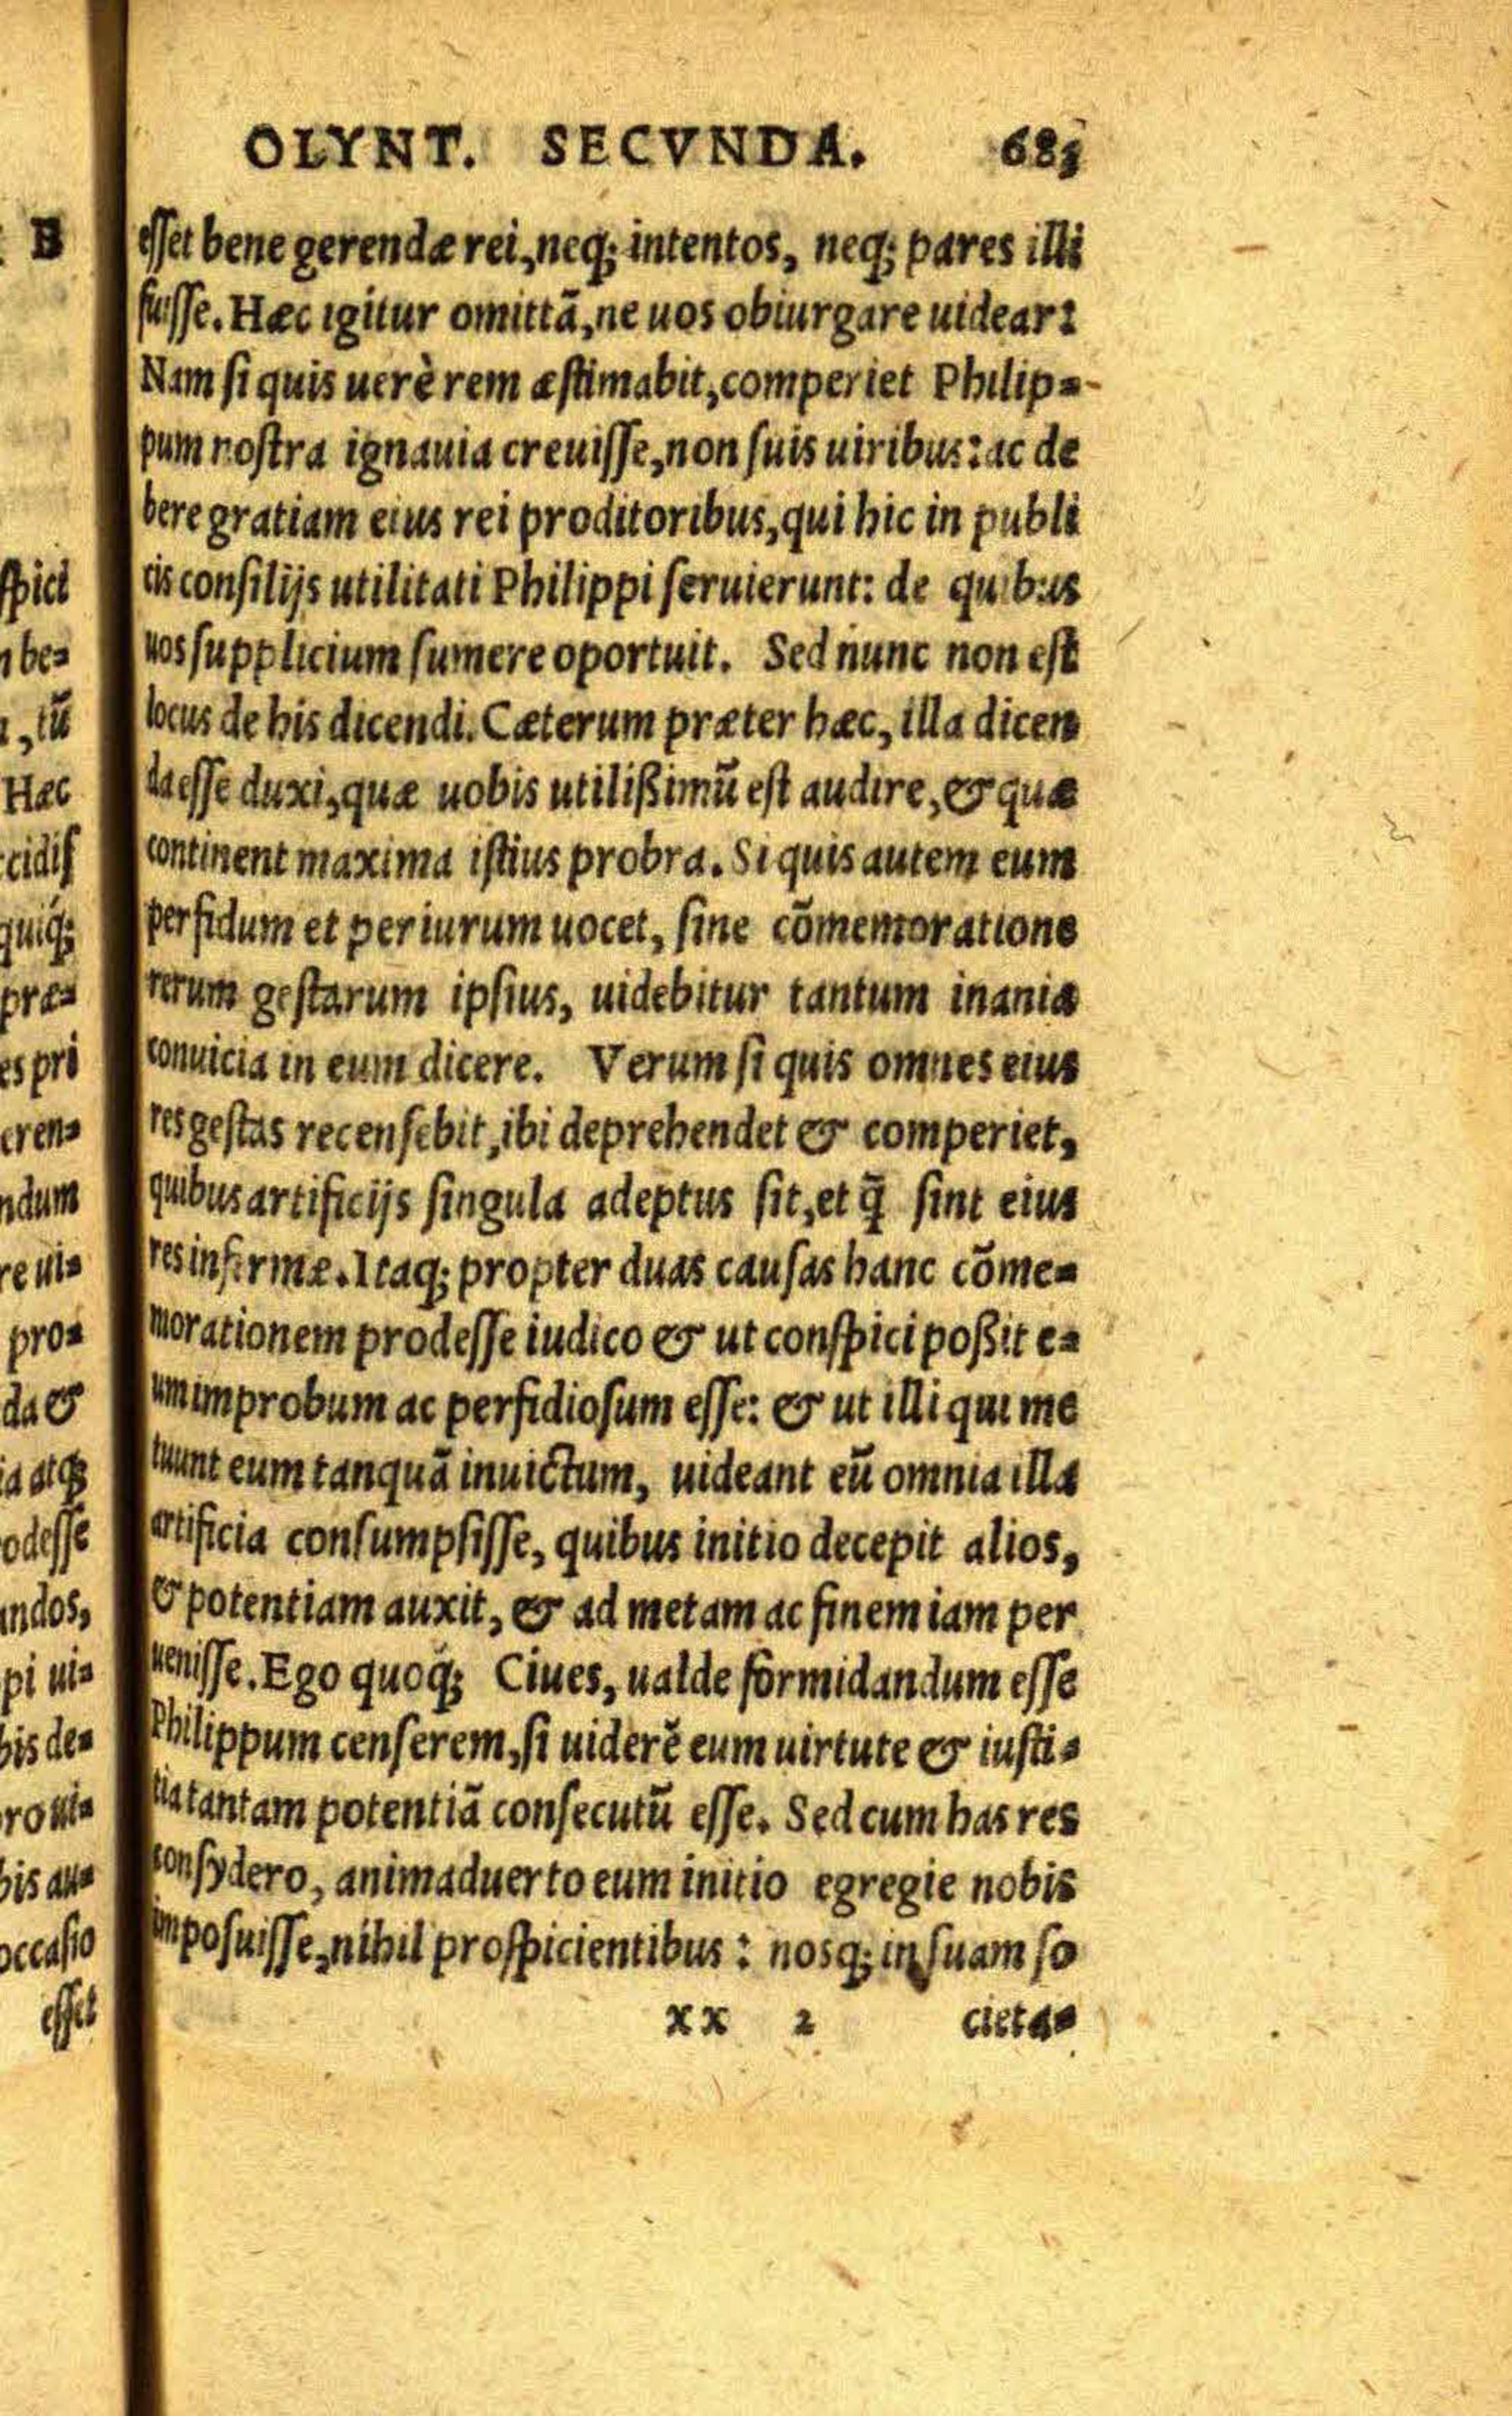 OLYNT. SECVNDA. 683
esset bene gerendæ rei, neq; intentos, neq; pares illi
fuisse. Hæc igitur omittã, ne uos obiurgare uidear:
Nam si quis uerè rem æstimabit, comperiet Philip-
pum nostra ignauia creuisse, non suis uiribus: ac de
bere gratiam eius rei proditoribus, qui hic in publi
cis consilijs utilitati Philippi seruierunt: de quibus
uos supplicium sumere oportuit. Sed nunc non est
locus de his dicendi. Cæterum præter hæc, illa dicen
da esse duxi, quæ uobis utilißimũ est audire, & quæ
continent maxima istius probra. Si quis autem eum
perfidum et periurum uocet, sine cõmemoratione
rerum gestarum ipsius, uidebitur tantum inania
conuicia in eum dicere. Verum si quis omnes eius
res gestas recensebit, ibi deprehendet & comperiet,
quibus artificijs singula adeptus sit, et q̃ sint eius
res infirmæ. Itaq; propter duas causas hanc cõme-
morationem prodesse iudico & ut conspici poßit e-
um improbum ac perfidiosum esse: & ut illi qui me
tuunt eum tanquã inuictum, uideant eũ omnia illa
artificia consumpsisse, quibus initio decepit alios,
& potentiam auxit, & ad metam ac finem iam per
uenisse. Ego quoq́; Ciues, ualde formidandum esse
Philippum censerem, si uiderẽ eum uirtute & iusti-
tia tantam potentiã consecutũ esse. Sed cum has res
consydero, animaduerto eum initio egregie nobis
imposuisse, nihil prospicientibus: nosq; in suam so
xx 2 cieta-
B
spici
be-
, tũ
Hæc
cidis
quiq́;
præ-
es pri
eren-
ndum
re ui-
pro-
da &
ia atq;
odesse
andos,
pi ui-
his de-
ro ui-
his au-
occasio
esset